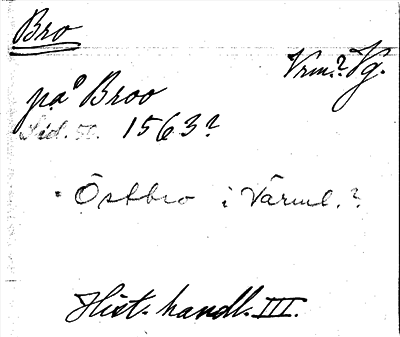 Bro
Vrm.? Vg.
på Broo
Lid. 50. 1563?
Östbro i Värml.?
Hist. handl. III.